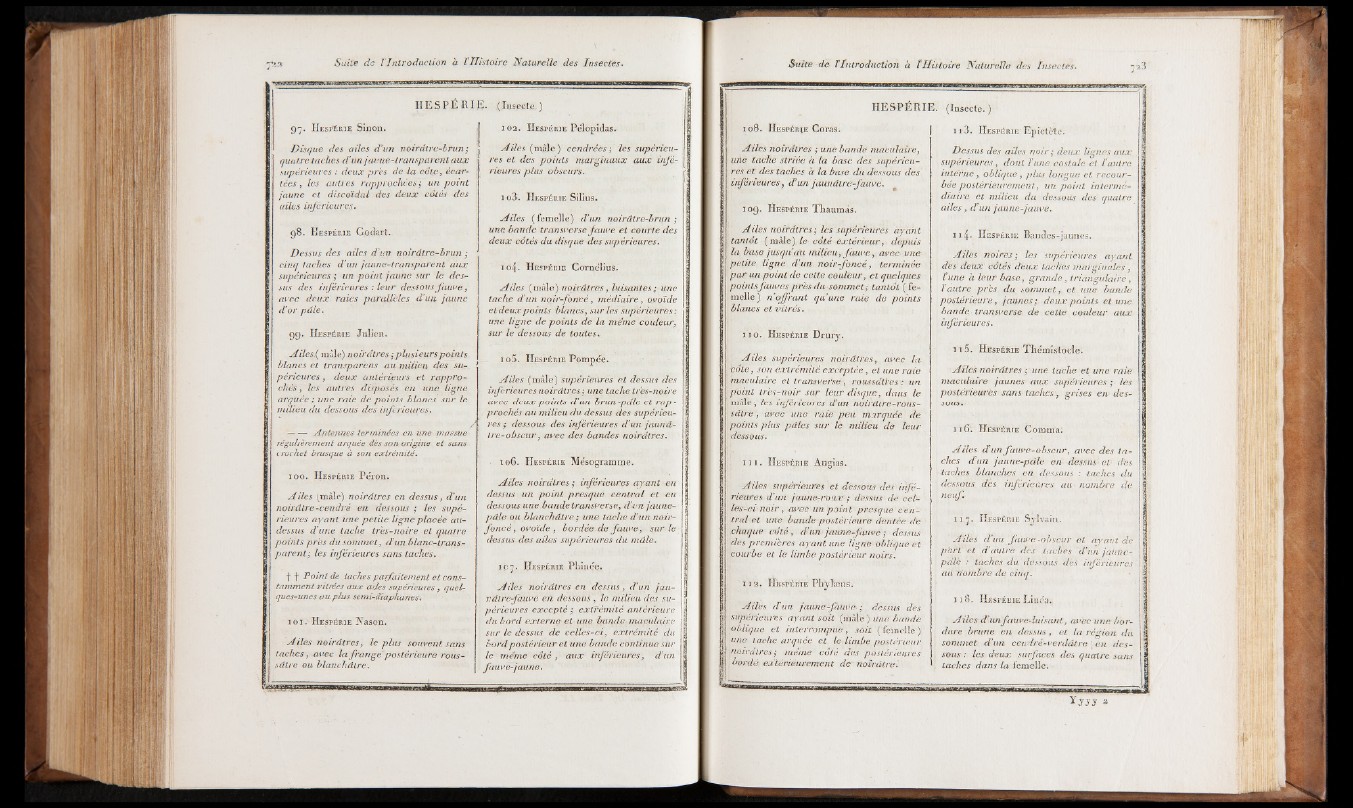 722
Suite de l'Introduction à l'Histoire Naturelle des Insectes.
HESPÉRIE. (Insecte.)
97. Hespérie Sinon.
Disque des ailes d'un noirâtre-brun;
quatre taches d'un jaune-transparent aux
supérieures : deux près de la côte, écar-
tées, les autres rapprochées; un point
jaune et discoïdal des deux côtés des
ailes inférieures.
98. Hespérie Godart.
Dessus des ailes d'un noirâtre-brun;
cinq taches d'un jaune-transparent aux
supérieures; un point jaune sur le des-
sus des inférieures : leur dessous fauve,
avec deux raies parallèles d'un jaune
d'or pâle.
99. Hespérie Julien.
Ailes (mâle) noirâtres; plusieurs points
blancs et transparens au milieu des su-
périeures, deux antérieurs et rappro-
chés, les autres disposés en une ligne
arquée; une raie de points blancs sur le
milieu du dessous des inférieures.
—— Antennes terminées en une massue
régulièrement arquée dès son origine et sans
crochet brusque à son extrémité.
100. Hespérie Péron.
Ailes (mâle) noirâtres en dessus, d'un
noirâtre-cendré en dessous; les supé-
rieures ayant une petite ligne placée au-
dessus d'une tache très-noire et quatre
points près du sommet, d'un blanc-trans-
parent; les inférieures sans taches.
†† Point de taches parfaitement et cons-
tamment vitrées aux ailes supérieures, quel-
ques-unes au plus semi-diaphanes.
101. Hespérie Nason.
Ailes noirâtres, le plus souvent sans
taches, avec la frange postérieure rous-
sâtre ou blanchâtre.
102. Hespérie Pélopidas.
Ailes (mâle) cendrées; les supérieu-
res et des points marginaux aux infé-
rieures plus obscurs.
103. Hespérie Silius.
Ailes (femelle) d'un noirâtre-brun;
une bande transverse fauve et courte des
deux côtés du disque des supérieures.
104. Hespérie Cornélius.
Ailes (mâle) noirâtres, luisantes; une
tache d'un noir-foncé, médiaire, ovoïde
et deux points blancs, sur les supérieures:
une ligne de points de la même couleur,
sur le dessous de toutes.
105. Hespérie Pompée.
Ailes (mâle) supérieures et dessus des
inférieures noirâtres; une tache très-noire
avec deux points d'un brun-pâle et rap-
prochés au milieu du dessus des supérieu-
res; dessous des inférieures d'un jaunâ-
tre-obscur, avec des bandes noirâtres.
106. Hespérie Mésogramme.
Ailes noirâtres; inférieures ayant en
dessus un point presque central et en
dessous une bande transverse, d'un jaune-
pâle ou blanchâtre; une tache d'un noir-
foncé, ovoïde, bordée de fauve, sur le
dessus des ailes supérieures du mâle.
107. Hespérie Phinée.
Ailes noirâtres en dessus, d'un jau-
nâtre-fauve en dessous, le milieu des su-
périeures excepté; extrémité antérieure
du bord externe et une bande maculaire
sur le dessus de celles-ci, extrémité du
bord postérieur et une bande continue sur
le même côté, aux inférieures, d'un
fauve-jaune.
Suite de l'Introduction à l'Histoire Naturelle des Insectes.
723
HESPÉRIE. (Insecte.)
108. Hespérie Coras.
Ailes noirâtres; une bande maculaire,
une tache striée à la base des supérieu-
res et des taches à la base du dessous des
inférieures, d'un jaunâtre-fauve.
109. Hespérie Thaumas.
Ailes noirâtres; les supérieures ayant
tantôt (mâle) le côté extérieur, depuis
la base jusqu'au milieu, fauve, avec une
petite ligne d'un noir-foncé, terminée
par un point de cette couleur, et quelques
points fauves près du sommet; tantôt (fe-
melle) n'offrant qu'une raie de points
blancs et vitrés.
110. Hespérie Drury.
Ailes supérieures noirâtres, avec la
côte, son extrémité exceptée, et une raie
maculaire et transverse, roussâtres: un
point très-noir sur leur disque, dans le
mâle, les inférieures d'un noirâtre-rous-
sâtre, avec une raie peu marquée de
points plus pâles sur le milieu de leur
dessous.
111. Hespérie Augias.
Ailes supérieures et dessous des infé-
rieures d'un jaune-roux; dessus de cel-
les-ci noir, avec un point presque cen-
tral et une bande postérieure dentée de
chaque côté, d'un jaune-fauve; dessus
des premières ayant une ligne oblique et
courbe et le limbe postérieur noirs.
112. Hespérie Phyléus.
Ailes d'un jaune-fauve; dessus des
supérieures ayant soit (mâle) une bande
oblique et interrompue, soit (femelle)
une tache arquée et le limbe postérieur
noirâtres; même côté des postérieures
bordé extérieurement de noirâtre.
113. Hespérie Epictète.
Dessus des ailes noir; deux lignes aux
supérieures, dont l'une costale et l'autre
interne, oblique, plus longue et recour-
bée postérieurement, un point intermé-
diaire et milieu du dessous des quatre
ailes, d'un jaune-fauve.
114. Hespérie Bandes-jaunes.
Ailes noires; les supérieures ayant
des deux côtés deux taches marginales,
l'une à leur base, grande, triangulaire,
l'autre près du sommet, et une bande
postérieure, jaunes; deux points et une
bande transverse de cette couleur aux
inférieures.
115. Hespérie Thémistocle.
Ailes noirâtres; une tache et une raie
maculaire jaunes aux supérieures; les
postérieures sans taches, grises en des-
sous.
116. Hespérie Comma.
Ailes d'un fauve-obscur, avec des ta-
ches d'un jaune-pâle en dessus et des
taches blanches en dessous : taches du
dessous des inférieures au nombre de
neuf.
117. Hespérie Sylvain.
Ailes d'un fauve-obscur et ayant de
part et d'autre des taches d'un jaune-
pâle : taches du dessous des inférieures
au nombre de cinq.
118. Hespérie Linéa.
Ailes d'un fauve-luisant, avec une bor-
dure brune en dessus, et la région du
sommet d'un cendré-verdâtre en des-
sous : les deux surfaces des quatre sans
taches dans la femelle.
Yyyy 2